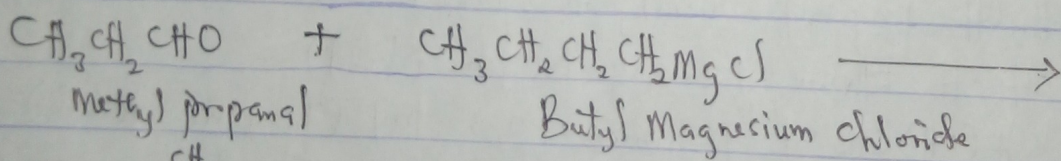 CH₃CH₂CHO + CH₃CH₂CH₂CH₂MgCl ⟶
Methyl propanal Butyl Magnesium Chloride
CH